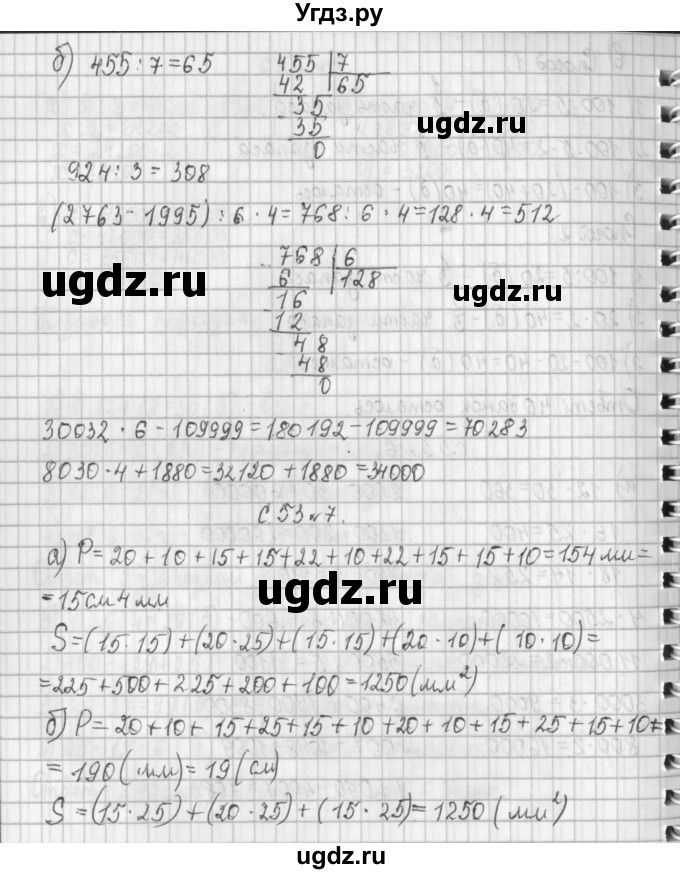 Угдз.ру
б) 455 : 7 = 65
455 7
42 65
35
35
0
ugdz.ru
924 : 3 = 308
(2763 - 1995) : 6 · 4 = 768 : 6 · 4 = 128 · 4 = 512
ugdz.ru
768 6
6 128
16
12
48
48
0
ugdz.ru
30032 · 6 - 109999 = 180192 - 109999 = 70283
8030 · 4 + 1880 = 32120 + 1880 = 34000
С 53 №7.
а) P = 20 + 10 + 15 + 15 + 22 + 10 + 22 + 15 + 15 + 10 = 154 мм =
= 15 см 4 мм
ugdz.ru
S = (15 · 15) + (20 · 25) + (15 · 15) + (20 · 10) + (10 · 10) =
= 225 + 500 + 225 + 200 + 100 = 1250 (мм²)
б) P = 20 + 10 + 15 + 25 + 15 + 10 + 20 + 10 + 15 + 25 + 15 + 10 =
= 190 (мм) = 19 (см)
ugdz.ru
S = (15 · 25) + (20 · 25) + (15 · 25) = 1250 (мм²)
ugdz.ru